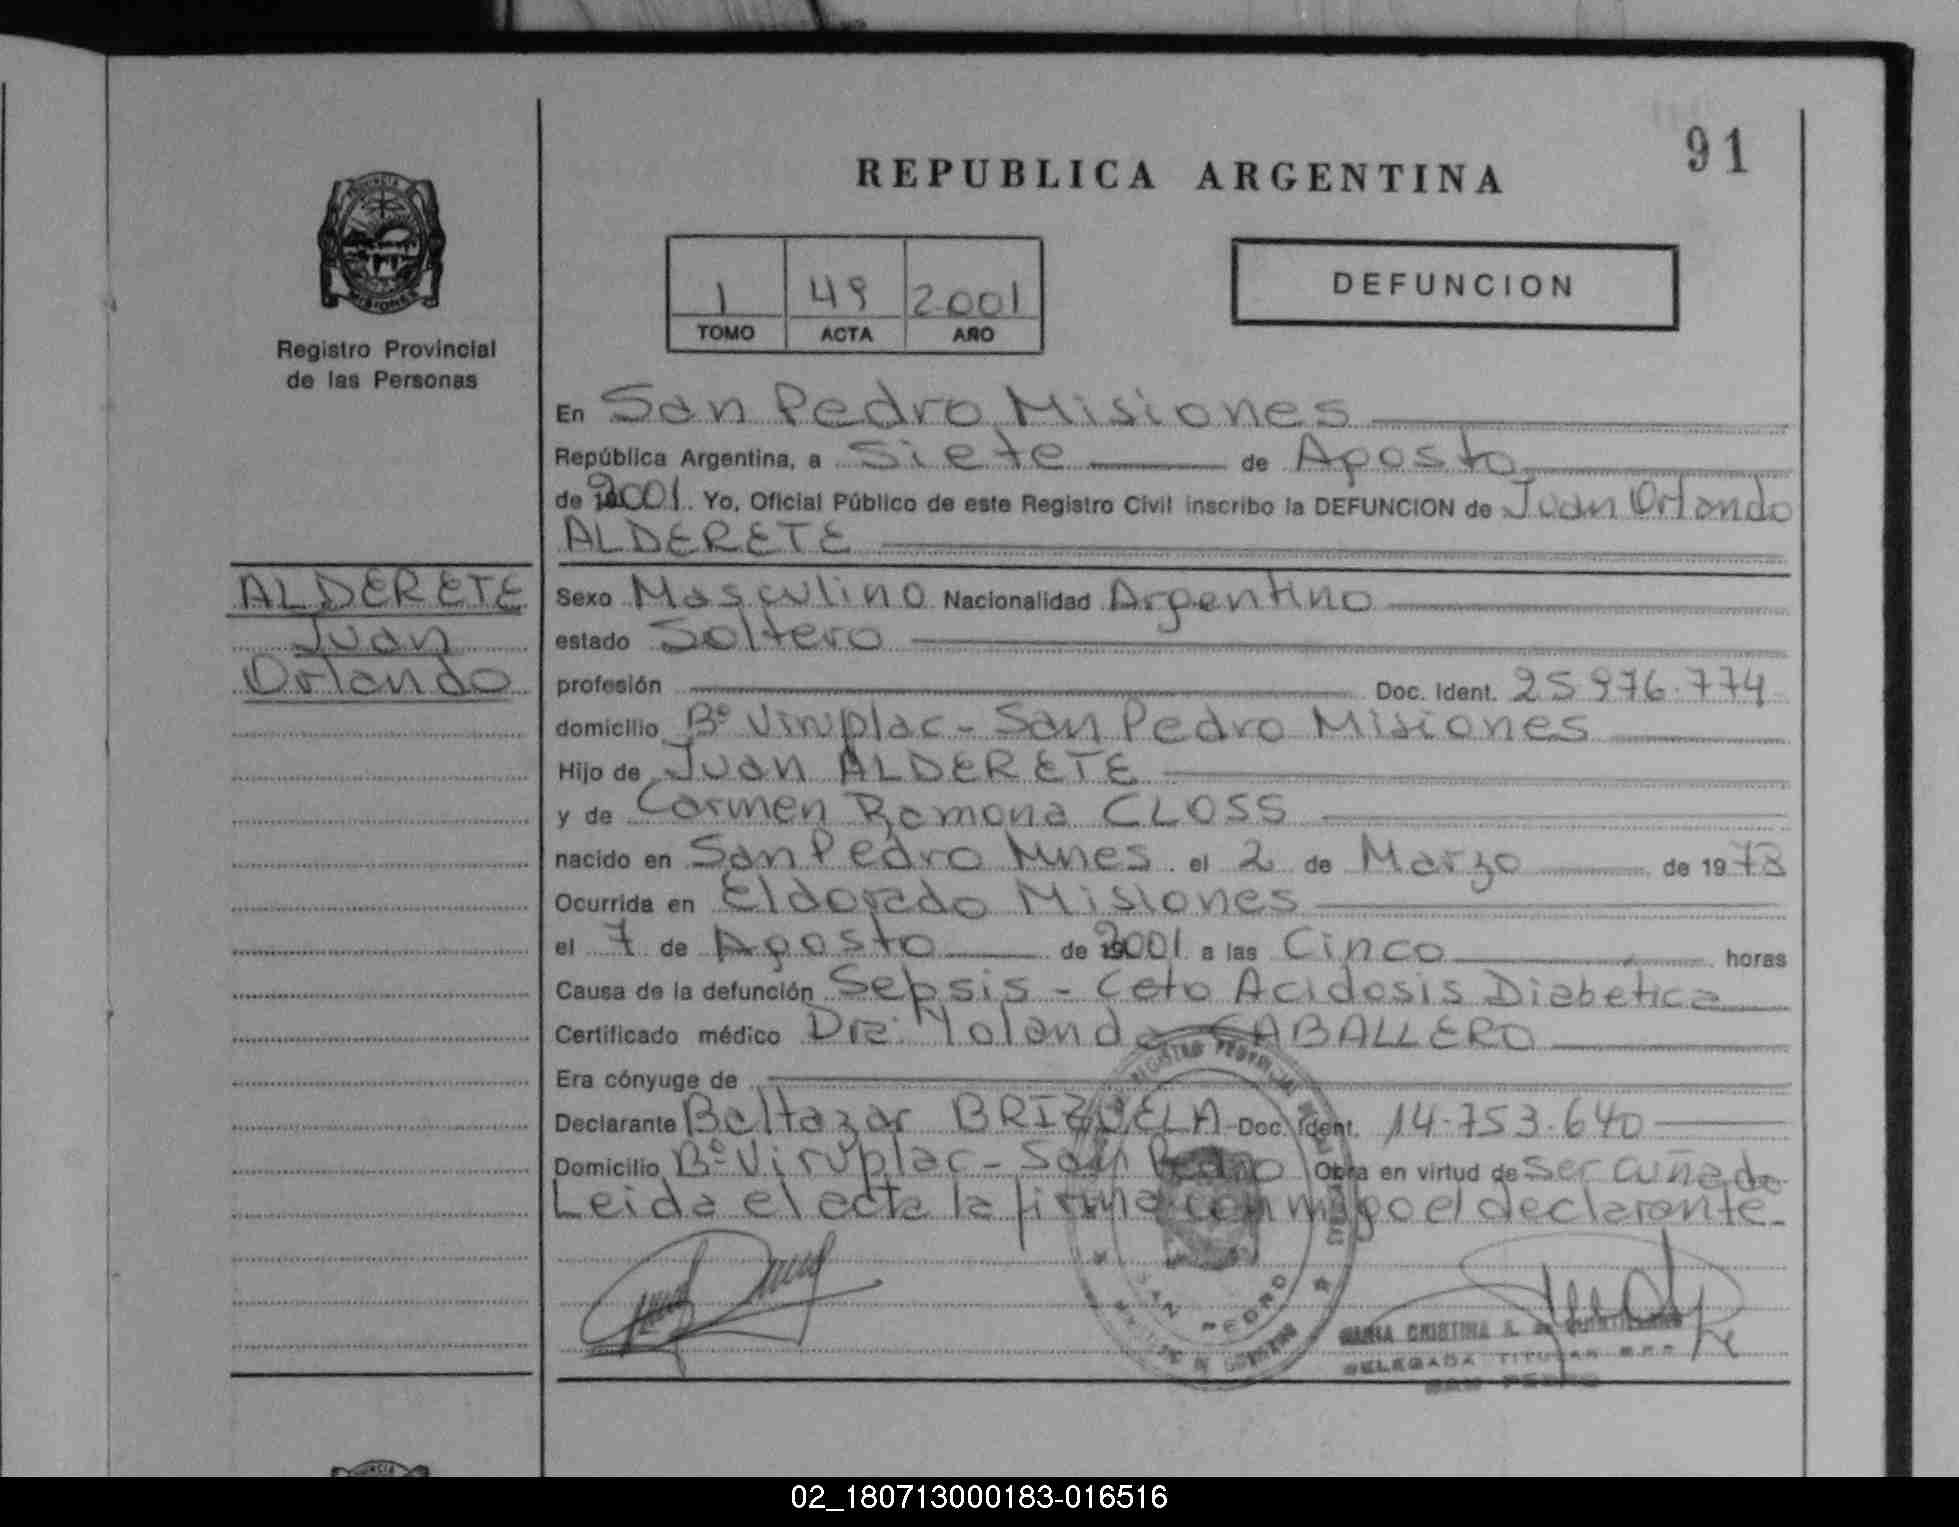 91
REPUBLICA ARGENTINA
PROVINCIA
MISIONES
Registro Provincial
de las Personas
1 49 2001
TOMO ACTA AÑO
DEFUNCION
En San Pedro Misiones
República Argentina, a Siete de Agosto
de 2001 Yo, Oficial Público de este Registro Civil inscribo la DEFUNCION de Juan Orlando
ALDERETE
ALDERETE
Juan
Orlando
Sexo Masculino Nacionalidad Argentino
estado Soltero
profesión Doc. Ident. 25 976.774
domicilio Bº Viruplac - San Pedro Misiones
Hijo de Juan ALDERETE
y de Carmen Ramona CLOSS
nacido en San Pedro Mnes el 2 de Marzo de 1978
Ocurrida en Eldorado Misiones
el 7 de Agosto de 2001 a las Cinco horas
Causa de la defunción Sepsis - Ceto Acidosis Diabetica
Certificado médico Dra: Yolanda CABALLERO
Era cónyuge de
Declarante Baltazar BRIZUELA Doc. Ident. 14.753.640
Domicilio Bº Viruplac - San Pedro Obra en virtud de ser cuñado
Leida el acta la firma conmigo el declarante.
SAN PEDRO
MARIA CRISTINA A. de
DELEGADA TITULAR
SAN PEDRO
02_180713000183-016516